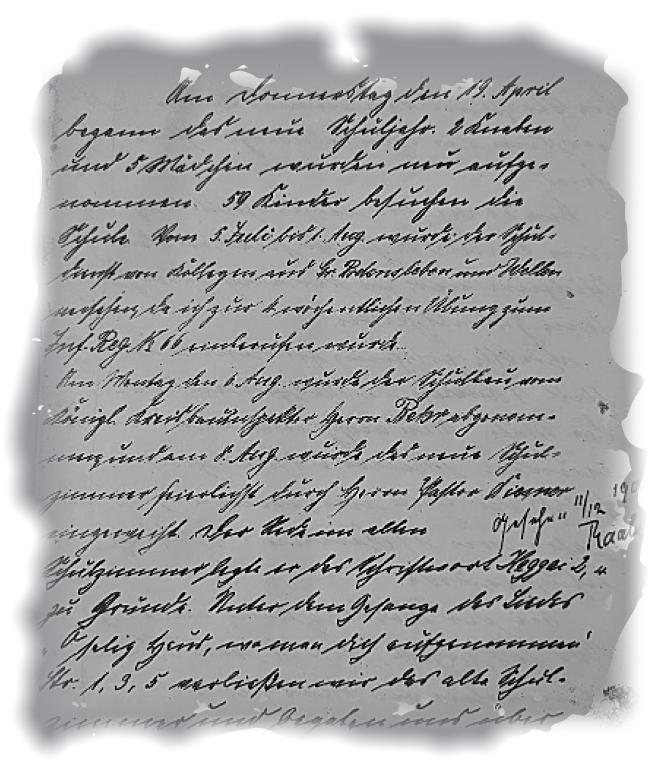 Am Donnerstag den 19. April
begann das neue Schuljahr. 2 Knaben
und 5 Mädchen wurden neu aufge-
nommen. 59 Kinder besuchen die
Schule. Vom 5. Juli bis 1. Aug. wurde der Schul-
dienst von Kollegen aus Gr. Rodensleben und Wellen
versehen, da ich zur wöchentlichen Übung zum
Inf. Reg. № 66 einberufen wurde.
Am Montag den 6. Aug. wurde der Schulbau vom
Königl. Kreisbauinspektor Herrn abgenom-
men und am 8. Aug. wurde das neue Schul-
zimmer feierlichst durch Herrn Pastor
eingeweiht. Der Rede im alten
Gesehen 11/12
Schulzimmer legte er das Schriftwort Haggai 2,
zu Grunde. Unter dem Gesange des Liedes
„O selig Haus, wo man dich aufgenommen"
Str. 1, 3, 5 verließen wir das alte Schul-
zimmer und begaben uns über